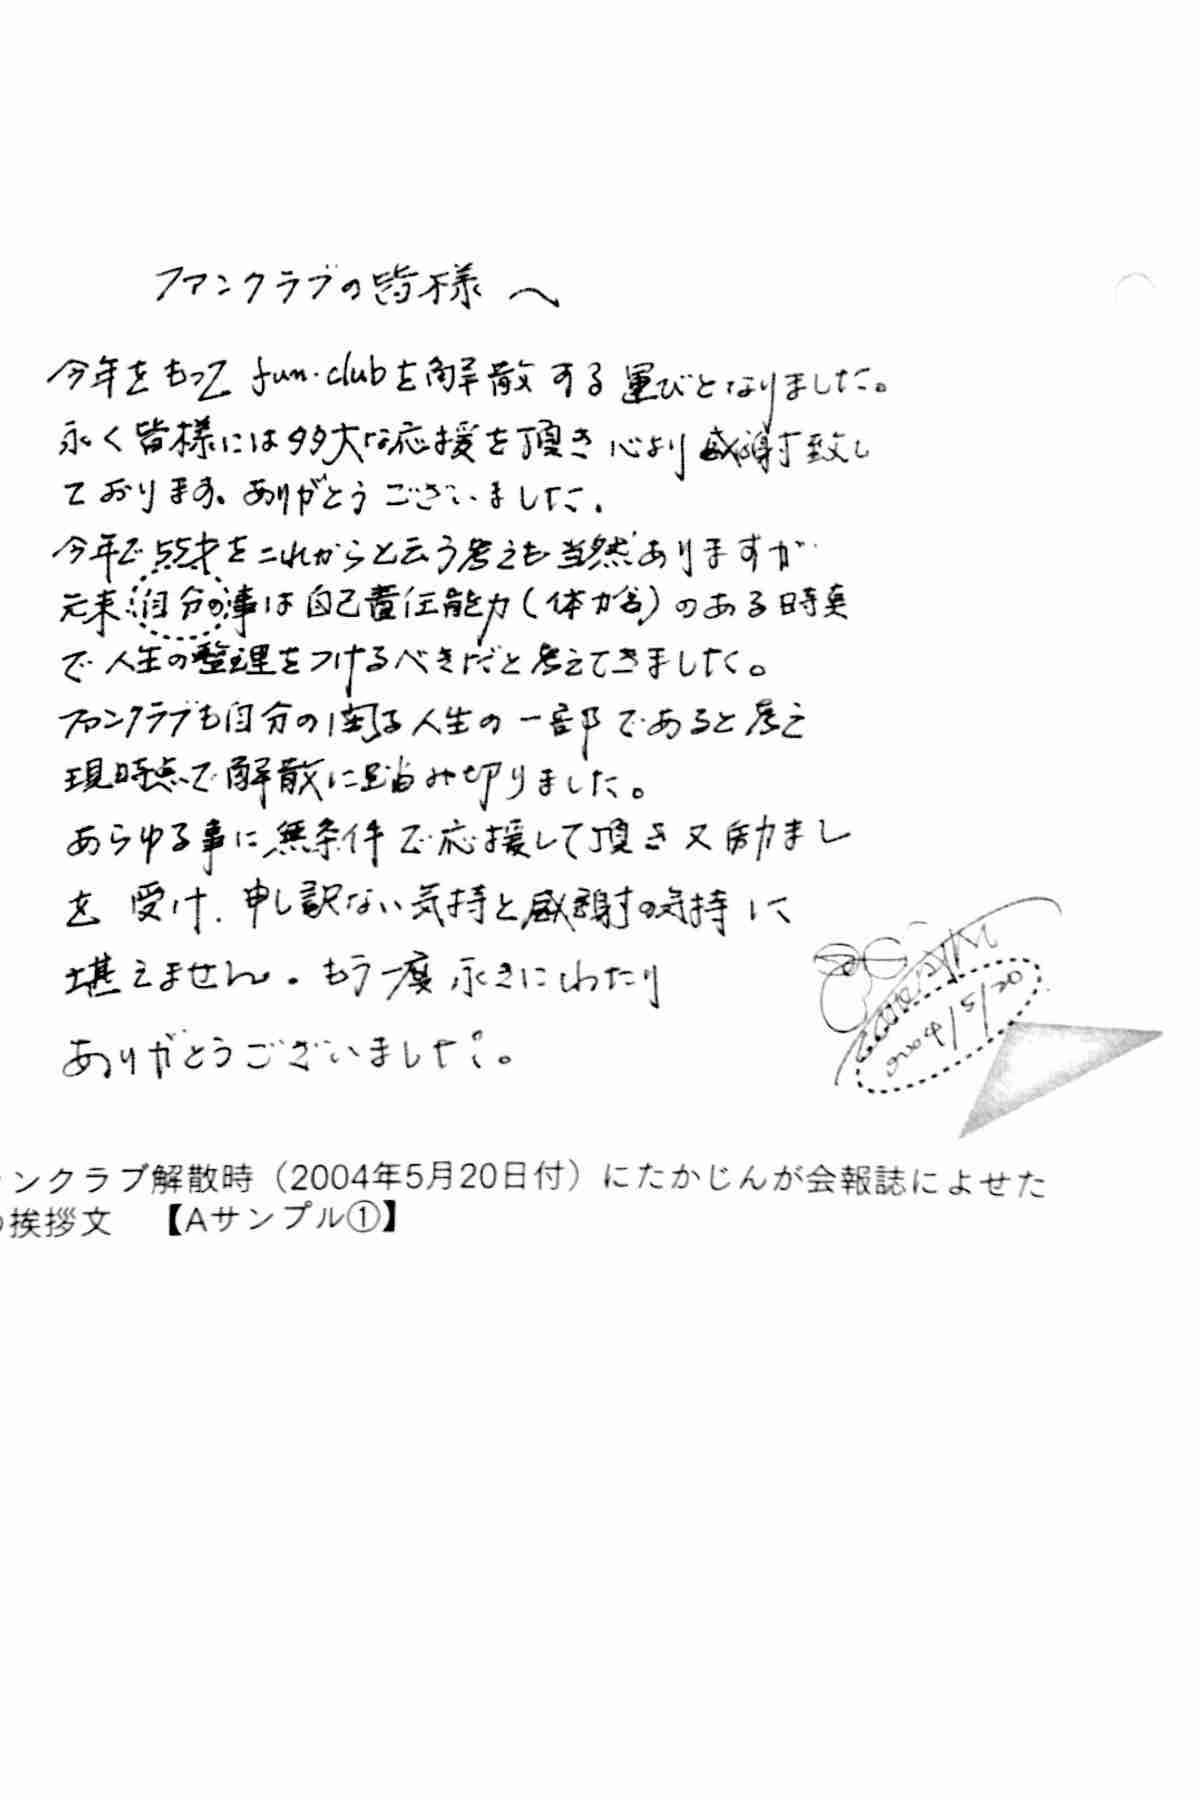 ファンクラブの皆様へ
今年をもって fun・clubを解散する運びとなりました。
永く皆様には多大な応援を頂き心より感謝致し
ております。ありがとうございました。
今年で55才をこれからと云う考えも当然ありますが
元来自分の事は自己責任能力(体力含)のある時点
で人生の整理をつけるべきだと考えてきました。
ファンクラブも自分の関る人生の一部であると考え
現時点で解散に踏み切りました。
あらゆる事に無条件で応援して頂き又励まし
を受け、申し訳ない気持と感謝の気持に
堪えません。もう一度永きにわたり
ありがとうございました。
2004/5/20
ンクラブ解散時(2004年5月20日付)にたかじんが会報誌によせた
の挨拶文 【Aサンプル①】